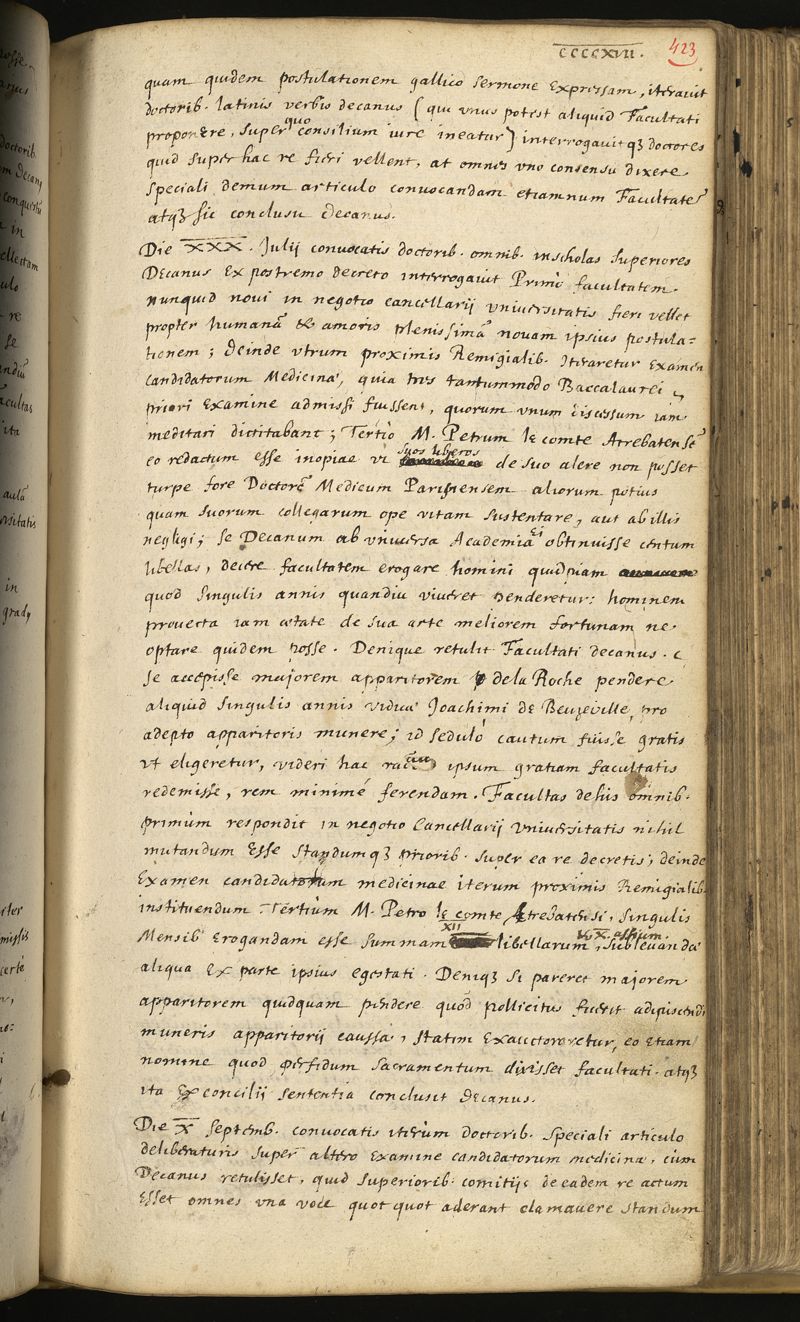 CCCCXVII. 423
quam quidem postulationem gallico sermone Expressam, iterauit
doctorib. latinis verbis decanus (qui vnus potest aliquid Facultati
proponere, super quo consilium iure ineatur) interrogauitqȝ doctores
quid super hac re fieri vellent, at omnes vno consensu dixere
speciali demum articulo convocandam etiamnum Facultatē
atqȝ sic conclusit Decanus.
Die XXX. Julij convocatis doctorib. omnib. in scholas superiores
Decanus Ex postremo decreto interrogauit Primò facultatem.
Nunquid noui in negotio cancellarij vniuersitatis fieri vellet
propter humanā & amoris plenissimā novam ipsius postula=
tionem; Deinde vtrum proximis Remigialib. Iteraretur Examen
Candidatorum Medicinæ, quia tres tantummodo Baccalaurei
priori Examine admissi fuissent, quorum vnum discessum iam
meditari dictitabant; Tertiò M. Petrum le comte Atrebatensē
eo redactum esse inopiae vt suos liberos de suo alere non posset
turpe fore Doctorē Medicum Parisiensem aliorum potius
quam suorum collegarum ope vitam sustentare, aut ab illis
negligi; se Decanum ab vniuersa Academia ei obtinuisse centum
libellas, decere facultatem erogare homini quidpiam
quod singulis annis quandiu viueret penderetur: hominem
prouecta iam ætate de sua arte meliorem fortunam ne
optare quidem posse. Denique retulit Facultati decanus.
se accepisse majorem apparitorem de la Roche pendere
aliquid singulis annis viduæ Joachimi de Beuzeville, pro
adepto apparitoris munere; id sedulò cautum fuisse gratis
vt eligeretur, videri hac ipsum gratiam facultatis
redemisse, rem minimé ferendam. Facultas de his omnib.
primùm respondit in negotio Cancellarij Vniuersitatis nihil
mutandum Esse standumqȝ priorib. super ea re decretis; deinde
Examen candidatorum medicinae iterum proximis Remigialib.
instituendum. Tertiùm M. Petro le comte Atrebatensi, singulis
Mensib. Erogandam esse summam XII libellarum, sublevandæ
aliqua Ex parte ipsius egestati. Deniqȝ si pareret majorem
apparitorem quidquam pendere quod pollicitus fuerit adipiscendi
muneris apparitorij caussâ, statim Exauctoraretur, eo etiam
nomine quod perfidum sacramentum dixisset facultati. atqȝ
ita Ex concilij sententia conclusit Decanus.
Die X Septemb. convocatis iterùm doctorib. speciali articulo
deliberaturis super altero Examine candidatorum medicinæ, cùm
Decanus retulisset, quid superiorib. comitijs de eadem re actum
Esset omnes vna voce quotquot aderant clamauere standum